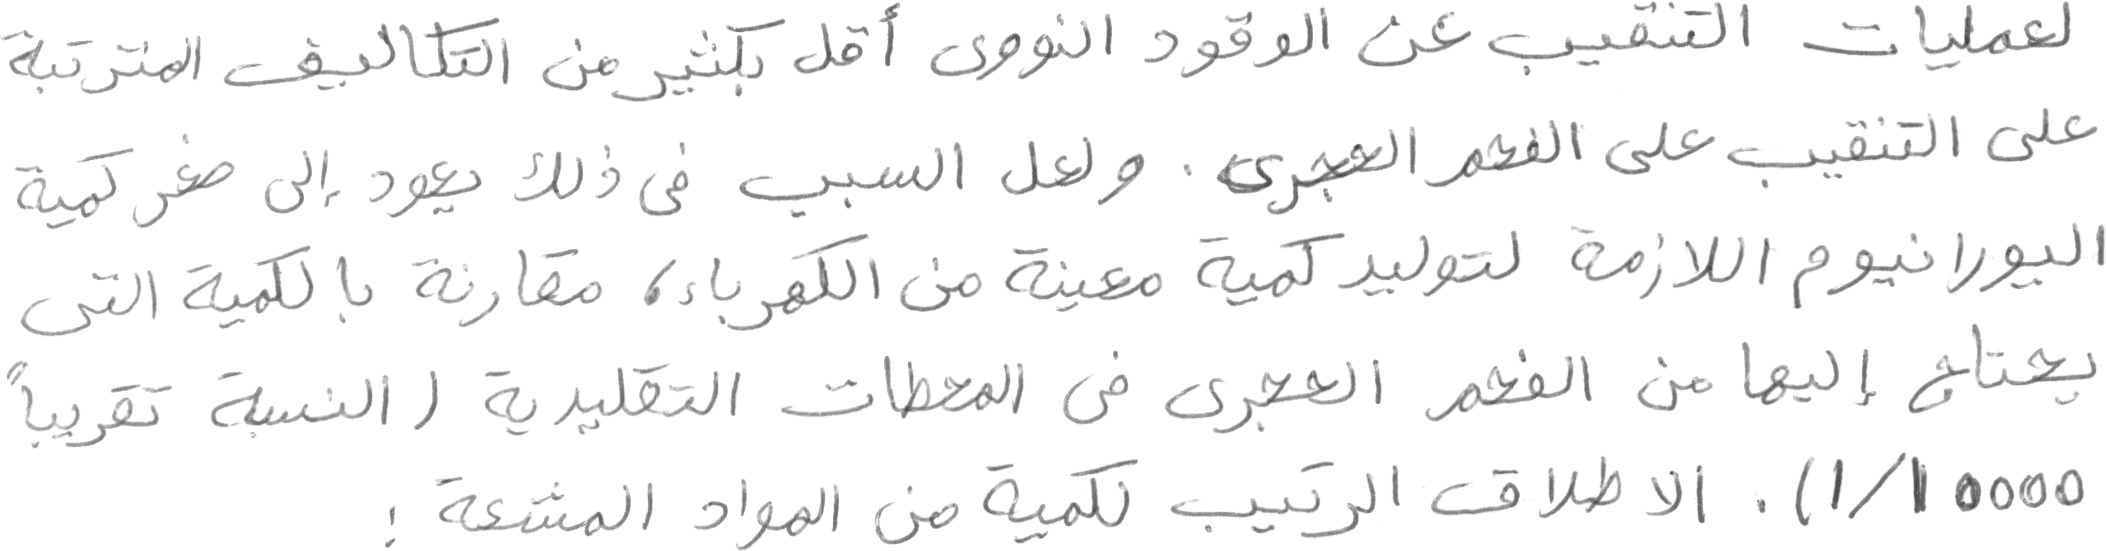 لعمليات التنقيب عن الوقود النووى أقل بكثير من التكاليف المترتبة
على التنقيب على الفحم الحجرى. ولعل السبب فى ذلك يعود إلى صغر كمية
اليورانيوم اللازمة لتوليد كمية معينة من الكهرباء، مقارنة بالكمية التى
يحتاج إليها من الفحم الحجرى فى المحطات التقليدية (النسبة تقريباً
1/10000). الاطلاق الرتيب لكمية من المواد المشعة :